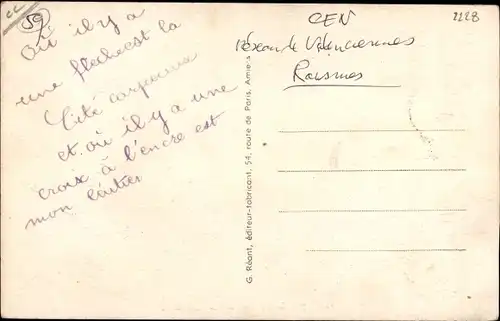 cc
59
Où il y a
une flèche est la
Cité
et où il y a une
croix à l'encre est
mon
G. Réant, éditeur-fabricant, 54, route de Paris, Amiens
CEN
réseau de Valenciennes
Raismes
2228